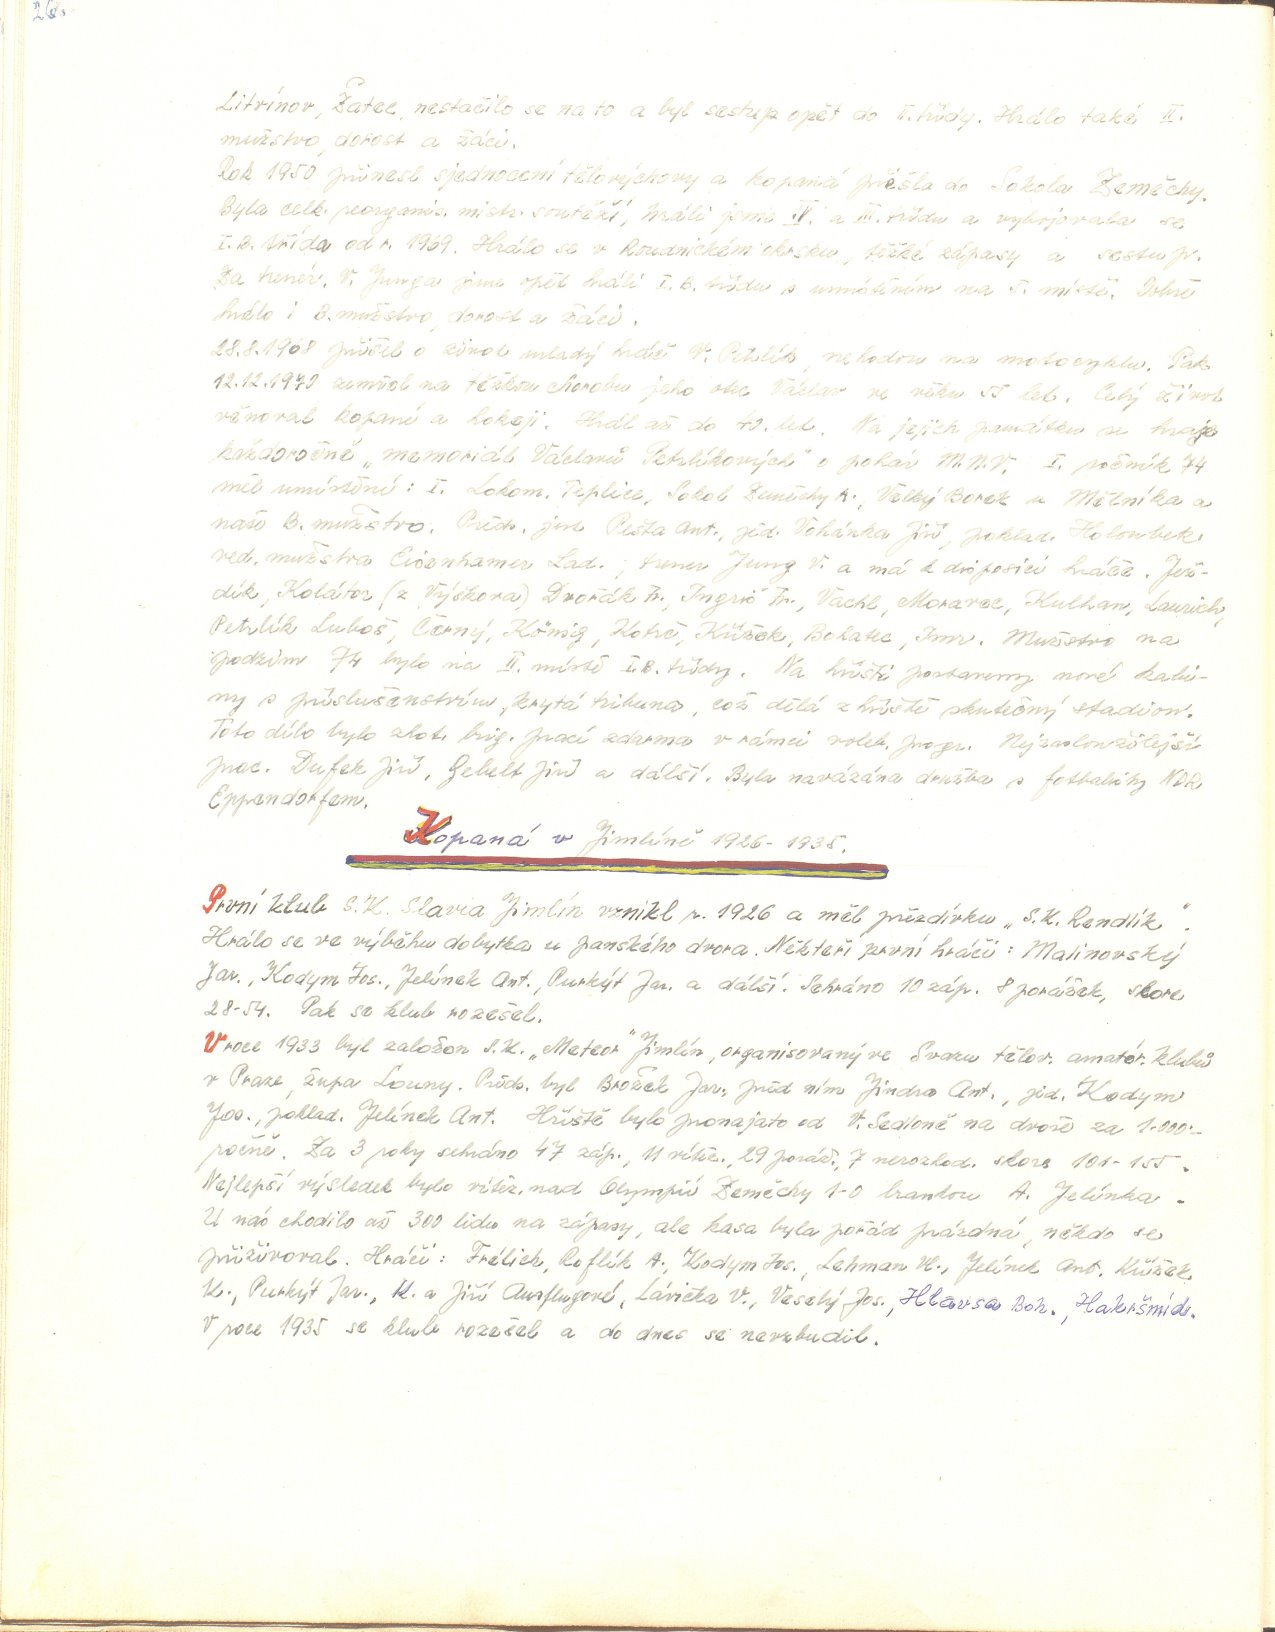 26.
Litvínov, Žatec, nestačilo se na to a byl sestup opět do II. třídy. Hrálo také II.
mužstvo, dorost a žáci.
Rok 1950 přinesl sjednocení tělovýchovy a kopaná přešla do Sokola Zeměchy.
Byla celk. reorganis. mistr. soutěží, hráli jsme IV. a III. třídu a vybojovala se
I.B. třída od r. 1969. Hrálo se v Roudnickém okrsku, těžké zápasy a sestup.
Za trenér. V. Junga jsme opět hráli I.B. třídu s umístěním na 5. místě. Dobře
hrálo i B. mužstvo, dorost a žáci.
28.8.1968 přišel o život mladý hráč V. Petrlík, nehodou na motocyklu. Pak
12.12.1970 zemřel na těžkou chorobu jeho otec Václav ve věku 55 let. Celý život
věnoval kopané a hokeji. Hrál až do 40. let. Na jejich památku se hraje
každoročně „memoriál Václavů Petrlíkových" o pohár M.N.V. I. ročník 74
měl umístění: I. Lokom. Teplice, Sokol Zeměchy A., Velký Borek u Mělníka a
naše B. mužstvo. Předs. jsou Pešta Ant., jed. Vohánka Jiří, poklad. Holoubek
ved. mužstva Eisenhamer Lad., trener Jung V. a má k disposici hráče. Jež-
dík, Kolátor (z Výškova) Dvořák Fr., Ingriš Fr., Váchl, Moravec, Kulhan, Laurich,
Petrlík Luboš, Černý, König, Kotrč, Křížek, Bohatec, Imr. Mužstvo na
podzim 74 bylo na II. místě I.B. třídy. Na hřišti postaveny nové kabi-
ny s příslušenstvím, krytá tribuna, což dělá z hřiště skutečný stadion.
Toto dílo bylo zhot. brig. prací zdarma v rámci voleb. progr. Nejzasloužilejší
prac. Dufek Jiří, Gebelt Jiří a další. Byla navázána družba s fotbalisty NDR
Eppendorfem.
Kopaná v Jimlíně 1926 - 1935.
První klub S.K. Slavia Jimlín vznikl r. 1926 a měl přezdívku „S.K. Rendlík".
Hrálo se ve výběhu dobytka u panského dvora. Někteří první hráči: Malinovský
Jar., Kodym Jos., Jelínek Ant., Purkýt Jar. a další. Sehráno 10 záp. 8 porážek, skore
28-54. Pak se klub rozešel.
V roce 1933 byl založen S.K. „Meteor" Jimlín, organisovaný ve Svazu tělov. amatér. klubů
v Praze, župa Louny. Předs. byl Brožek Jar., před ním Jindra Ant., jed. Kodym
Jos., poklad. Jelínek Ant. Hřiště bylo pronajato od V. Sedloně na dvoře za 1.000.-
ročně. Za 3 roky sehráno 47 záp., 11 vítěz., 29 poráž., 7 nerozhod. skore 101-155.
Nejlepší výsledek bylo vítěz. nad Olympií Zeměchy 1-0 brankou A. Jelínka.
U nás chodilo až 300 lidu na zápasy, ale kasa byla pořád prázdná, někdo se
přiživoval. Hráči: Frélich, Roflík A., Kodym Jos., Lehman W., Jelínek Ant. Křížek
K., Purkýt Jar., K. a Jiří Ausflugové, Lávička V., Veselý Jos., Hlavsa Boh., Hakršmíd.
V roce 1935 se klub rozešel a do dnes se nevzbudil.